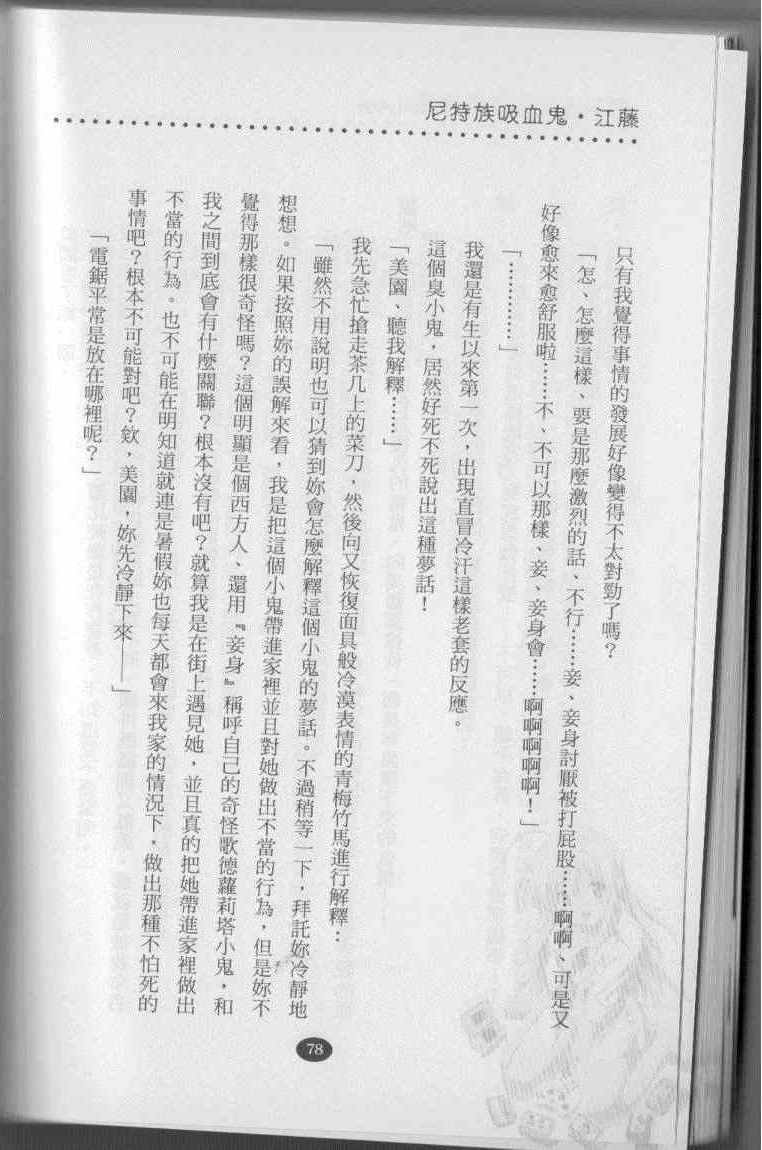 尼特族吸血鬼・江藤
只有我覺得事情的發展好像變得不太對勁了嗎？
「怎、怎麼這樣、要是那麼激烈的話、不行……妾、妾身討厭被打屁股……啊啊、可是又
好像愈來愈舒服啦……不、不可以那樣、妾、妾身會……啊啊啊啊啊！」
「…………」
我還是有生以來第一次，出現直冒冷汗這樣老套的反應。
這個臭小鬼，居然好死不死說出這種夢話！
「美園、聽我解釋……」
我先急忙搶走茶几上的菜刀，然後向又恢復面具般冷漠表情的青梅竹馬進行解釋：
「雖然不用說明也可以猜到妳會怎麼解釋這個小鬼的夢話。不過稍等一下，拜託妳冷靜地
想想。如果按照妳的誤解來看，我是把這個小鬼帶進家裡並且對她做出不當的行為，但是妳不
覺得那樣很奇怪嗎？這個明顯是個西方人、還用『妾身』稱呼自己的奇怪歌德蘿莉塔小鬼，和
我之間到底會有什麼關聯？根本沒有吧？就算我是在街上遇見她，並且真的把她帶進家裡做出
不當的行為。也不可能在明知道就連是暑假妳也每天都會來我家的情況下，做出那種不怕死的
事情吧？根本不可能對吧？欸，美園，妳先冷靜下來——」
「電鋸平常是放在哪裡呢？」
78